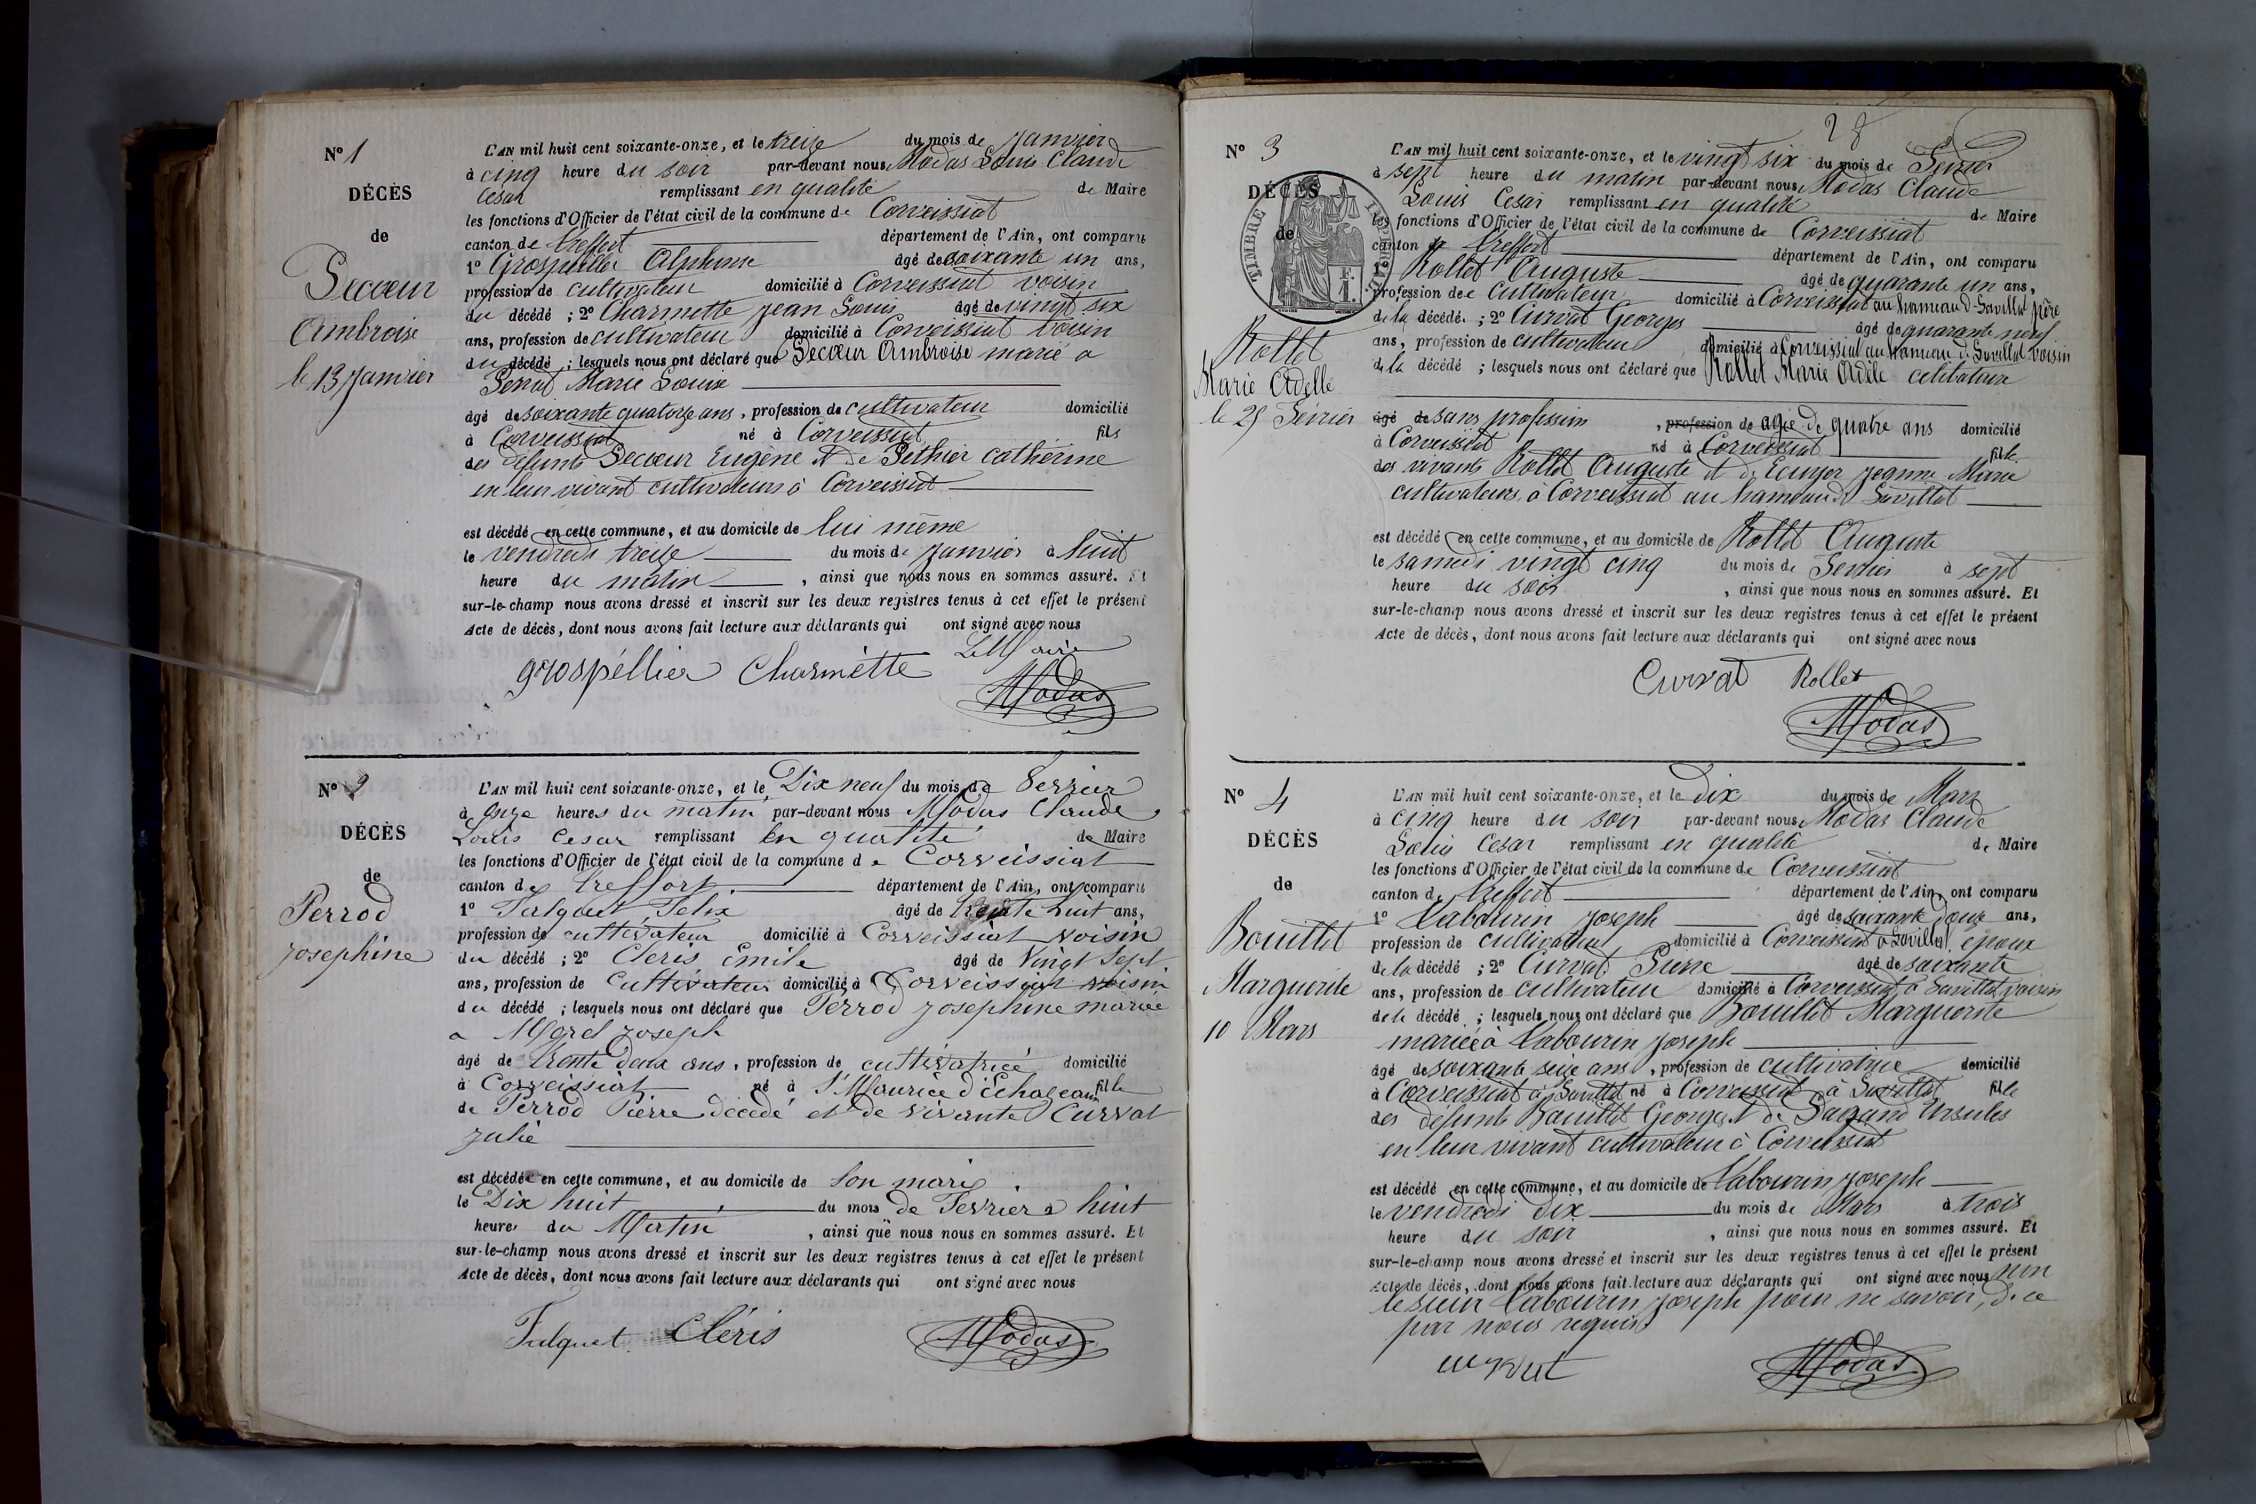 Nº 1
DÉCÈS
de
Secœur
Ambroise
le 13 Janvier
L'AN mil huit cent soixante-onze, et le treize du mois de Janvier
à cinq heure du soir par-devant nous Modas Louis Claude
César remplissant en qualité de Maire
les fonctions d'Officier de l'état civil de la commune de Corveissiat
canton de treffort département de l'Ain, ont comparu
1º Grospellier Alphonse âgé de soixante un ans,
profession de cultivateur domicilié à Corveissiat voisin
du décédé ; 2º Charmette Jean Louis âgé de vingt six
ans, profession de cultivateur domicilié à Corveissiat voisin
du décédé ; lesquels nous ont déclaré que Secœur Ambroise marié a
Perrat Marie Louise
âgé de soixante quatorze ans, profession de cultivateur domicilié
à Corveissiat né à Corveissiat fils
des défunts Secœur Eugène et de Pethier Catherine
en leur vivant cultivateurs à Corveissiat
est décédé en cette commune, et au domicile de lui même
le vendredi treize du mois de Janvier à huit
heure du matin, ainsi que nous nous en sommes assuré. Et
sur-le-champ nous avons dressé et inscrit sur les deux registres tenus à cet effet le présent
Acte de décès, dont nous avons fait lecture aux déclarants qui ont signé avec nous
Le Maire
grospéllier Charmétte
Modas
Nº 2
DÉCÈS
de
Perrod
Josephine
L'AN mil huit cent soixante-onze, et le Dix neuf du mois de Fevrier
à onze heures du matin par-devant nous Modas Claude
Louis Cesar remplissant en qualité de Maire
les fonctions d'Officier de l'état civil de la commune de Corveissiat
canton de treffort département de l'Ain, ont comparu
1º Fulquet Felix âgé de trente huit ans,
profession de cultivateur domicilié à Corveissiat voisin
du décédé ; 2º Cleris Emile âgé de Vingt Sept
ans, profession de Cultivateur domicilié à Corveissiat voisin
du décédé ; lesquels nous ont déclaré que Perrod Josephine mariée
a Morel Joseph
âgé de trente deux ans, profession de cultivatrice domicilié
à Corveissiat né à St Maurice d'Echazeaux fille
de Perrod Pierre décédé et de vivante Curvat
Julie
est décédée en cette commune, et au domicile de Son mari
le Dix huit du mois de Fevrier à huit
heures du Matin, ainsi que nous nous en sommes assuré. Et
sur-le-champ nous avons dressé et inscrit sur les deux registres tenus à cet effet le présent
Acte de décès, dont nous avons fait lecture aux déclarants qui ont signé avec nous
Fulquet Cléris Modas
28
Nº 3
DÉCÈS
de
TIMBRE IMPERIAL
1 F.
Rollet
Marie Adelle
le 25 Février
L'AN mil huit cent soixante-onze, et le vingt six du mois de Fevrier
à sept heure du matin par-devant nous Modas Claude
Louis Cesar remplissant en qualité de Maire
les fonctions d'Officier de l'état civil de la commune de Corveissiat
canton de treffort département de l'Ain, ont comparu
1º Rollet Auguste âgé de quarante un ans,
profession de cultivateur domicilié à Corveissiat au hameau d Savillat père
de la décédé ; 2º Curvat Georges âgé de quarante neuf
ans, profession de cultivateur domicilié à Corveissiat au hameau de Savillat voisin
de la décédé ; lesquels nous ont déclaré que Rollet Marie Adèle célibataire
âgé de sans profession, profession de agée de quatre ans domicilié
à Corveissiat né à Corveissiat fille
des vivants Rollet Auguste et de Ecuyer Jeanne Marie
cultivateurs à Corveissiat au hameau de Savillat
est décédé en cette commune, et au domicile de Rollet Auguste
le samedi vingt cinq du mois de Fevrier à sept
heure du soir, ainsi que nous nous en sommes assuré. Et
sur-le-champ nous avons dressé et inscrit sur les deux registres tenus à cet effet le présent
Acte de décès, dont nous avons fait lecture aux déclarants qui ont signé avec nous
Curvat Rollet
Modas
Nº 4
DÉCÈS
de
Bouillet
Marguerite
10 Mars
L'AN mil huit cent soixante-onze, et le dix du mois de Mars
à cinq heure du soir par-devant nous Modas Claude
Louis Cesar remplissant en qualité de Maire
les fonctions d'Officier de l'état civil de la commune de Corveissiat
canton de treffort département de l'Ain, ont comparu
1º Vabourin Joseph âgé de soixante douze ans,
profession de cultivateur domicilié à Corveissiat à Savillat époux
de la décédé ; 2º Curvat Pierre âgé de soixante
ans, profession de cultivateur domicilié à Corveissiat à Savillat voisin
de la décédé ; lesquels nous ont déclaré que Bouillet Marguerite
mariée à Vabourin Joseph
âgé de soixante seize ans, profession de cultivatrice domicilié
à Corveissiat à Savillat né à Corveissiat à Savillat fille
des défunts Bouillet Georges et de Ursules
en leur vivant cultivateur à Corveissiat
est décédé en cette commune, et au domicile de Vabourin Joseph
le vendredi dix du mois de Mars à trois
heure du soir, ainsi que nous nous en sommes assuré. Et
sur-le-champ nous avons dressé et inscrit sur les deux registres tenus à cet effet le présent
Acte de décès, dont nous avons fait lecture aux déclarants qui ont signé avec nous non
le sieur Vabourin Joseph pour ne savoir, de ce
par nous requis
curvat Modas